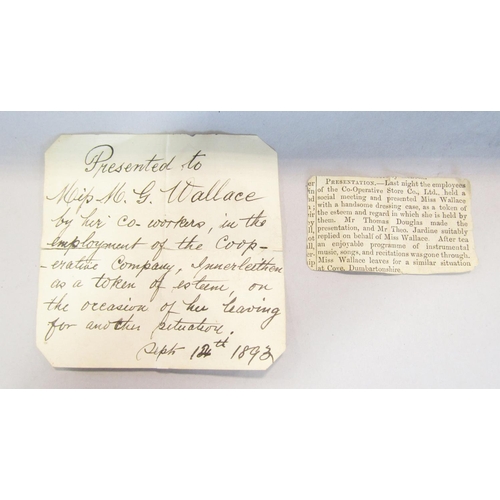 Presented to
Miss M. G. Wallace
by her co-workers, in the
employment of the Coop-
-erative Company, Innerleithen
as a token of esteem, on
the occasion of her leaving
for another situation.
Sept 12th 1893
PRESENTATION.—Last night the employees
of the Co-Operative Store Co., Ltd., held a
social meeting and presented Miss Wallace
with a handsome dressing case, as a token of
the esteem and regard in which she is held by
them. Mr Thomas Douglas made the
presentation, and Mr Thos. Jardine suitably
replied on behalf of Miss Wallace. After tea
an enjoyable programme of instrumental
music, songs, and recitations was gone through.
Miss Wallace leaves for a similar situation
at Cove, Dumbartonshire.